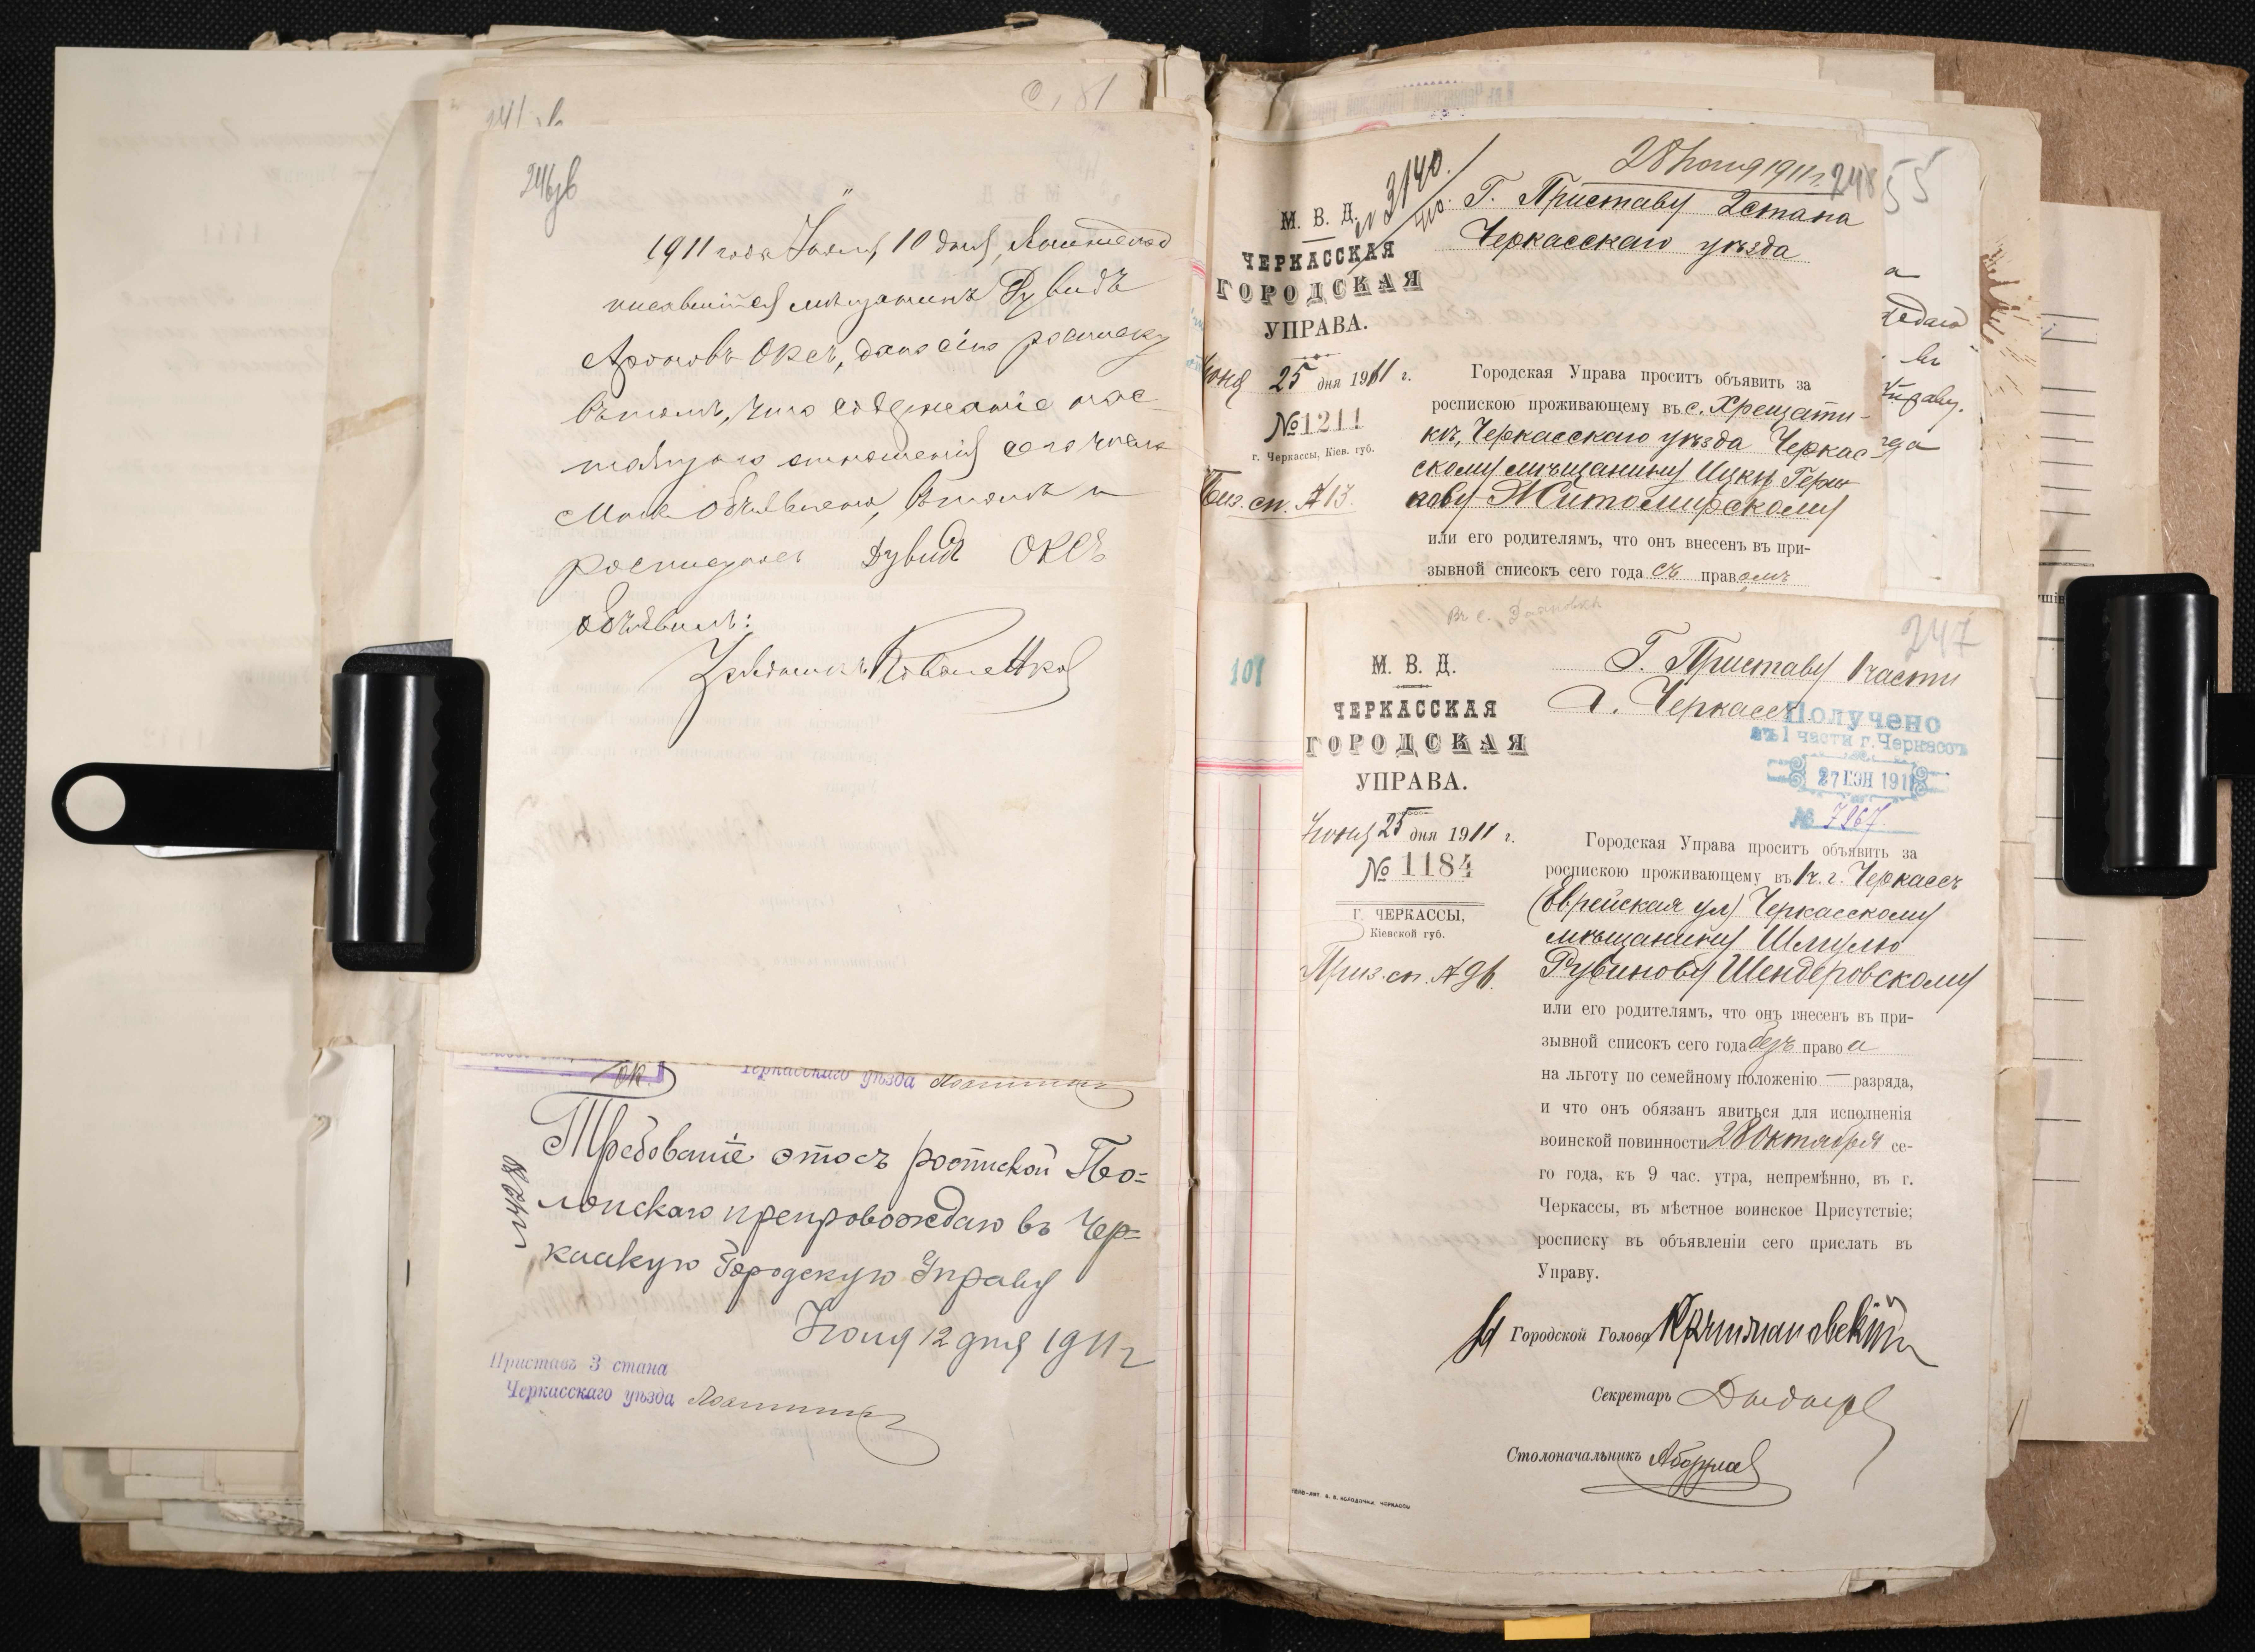 246об
1911 года Іюля 10 дня, я нижепод
писавшійся мѣщанинъ Дувидъ
Ароновъ Оксъ, даю сію росписку
въ томъ, что содержаніе нас
тоящаго отношенія сего числа
мнѣ объявлено, въ томъ и
росписуюсь Дувид Оксъ
объявилъ:
Урядникъ Коваленко
Черкасскаго уѣзда
Требованіе это съ роспиской По=
лонскаго препровождаю въ Чер=
каскую Городскую Управу
Іюля 12 дня 1911 г
Приставъ 3 стана
Черкасскаго уѣзда
28 Іюня 1911 г. 248
№ 3140.
Г. Приставу 2 стана
Черкасскаго уѣзда
М. В. Д.
ЧЕРКАССКАЯ
ГОРОДСКАЯ
УПРАВА.
Іюня 25 дня 1911 г.
№ 1211
г. Черкассы, Кіев. губ.
Приз. сп. А 13.
Городская Управа проситъ объявить за
роспискою проживающему въ с. Хрещати-
кѣ, Черкасскаго уѣзда Черкас-
скому мѣщанину Ицку Герш-
кову Житомирскому
или его родителямъ, что онъ внесенъ въ при-
зывной списокъ сего года съ правомъ
247
Г. Приставу 1 части
г. Черкассъ
Получено
въ 1 части г. Черкассъ
27 ІЮН 1911
№ 7267.
101
М. В. Д.
ЧЕРКАССКАЯ
ГОРОДСКАЯ
УПРАВА.
Іюня 25 дня 1911 г.
№ 1184
Г. ЧЕРКАССЫ,
Кіевской губ.
Приз. сп. А 96.
Городская Управа проситъ объявить за
роспискою проживающему въ 1 ч. г. Черкассъ
(Еврейская ул) Черкасскому
мѣщанину Шмулю
Рувинову Шендеровскому
или его родителямъ, что онъ внесенъ въ при-
зывной списокъ сего года безъ права
на льготу по семейному положенію — разряда,
и что онъ обязанъ явиться для исполненія
воинской повинности 28 октября се-
го года, къ 9 час. утра, непремѣнно, въ г.
Черкассы, въ мѣстное воинское Присутствіе;
росписку въ объявленіи сего прислать въ
Управу.
Городской Голова
Секретарь
Столоначальникъ